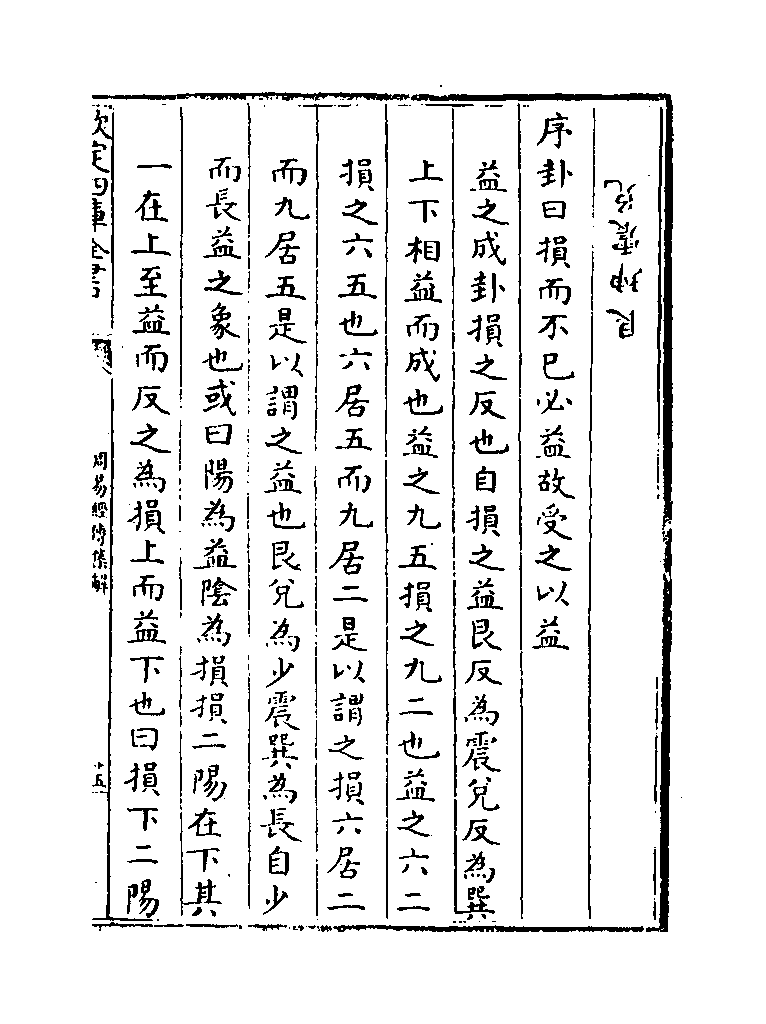 兌震坤艮
序卦曰損而不已必益故受之以益
益之成卦損之反也自損之益艮反為震兌反為巽
上下相益而成也益之九五損之九二也益之六二
損之六五也六居五而九居二是以謂之損六居二
而九居五是以謂之益也艮兌為少震巽為長自少
而長益之象也或曰陽為益陰為損損二陽在下其
一在上至益而反之為損上而益下也曰損下二陽
欽定四庫全書
周易經傳集解
十五